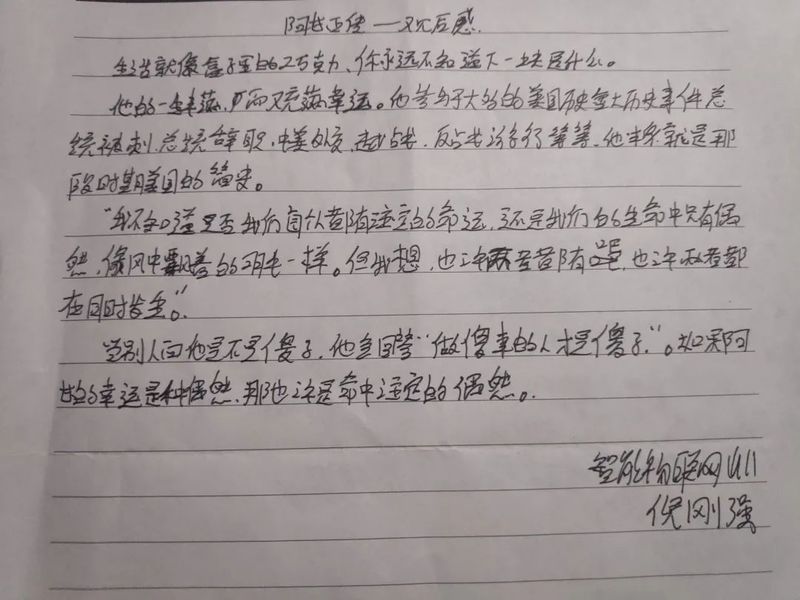 阿甘正传——观后感
生活就像盒子里的巧克力、你永远不知道下一块是什么。
他的一生丰满,而又充满幸运。他参与了大多的的美国历史重大历史事件总
统被刺、总统辞职、中美外交、越战、反战游行等等、他半条就是那
段时期美国的简史。
"我不知道是否我们每个人都有注定的命运,还是我们的生命中只有偶
然,像风中飘着的羽毛一样。但我想,也许两者都有吧,也许两者都
在同时发生"。
当别人问他是不是傻子,他会回答"做傻事的人才是傻子"。如果阿
甘的幸运是种偶然,那也许是命中注定的偶然。
智能物联网1411
倪刚强